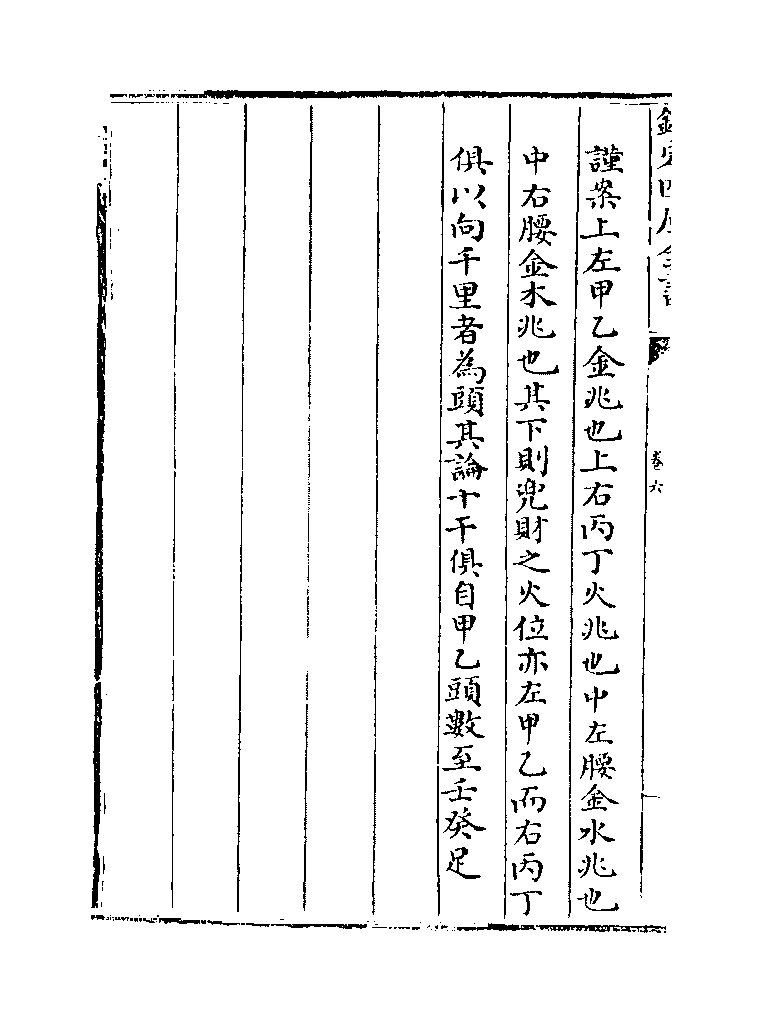 謹案上左甲乙金兆也上右丙丁火兆也中左腰金水兆也
中右腰金木兆也其下則兜財之火位亦左甲乙而右丙丁
俱以向千里者為頭其論十干俱自甲乙頭數至壬癸足
卷六